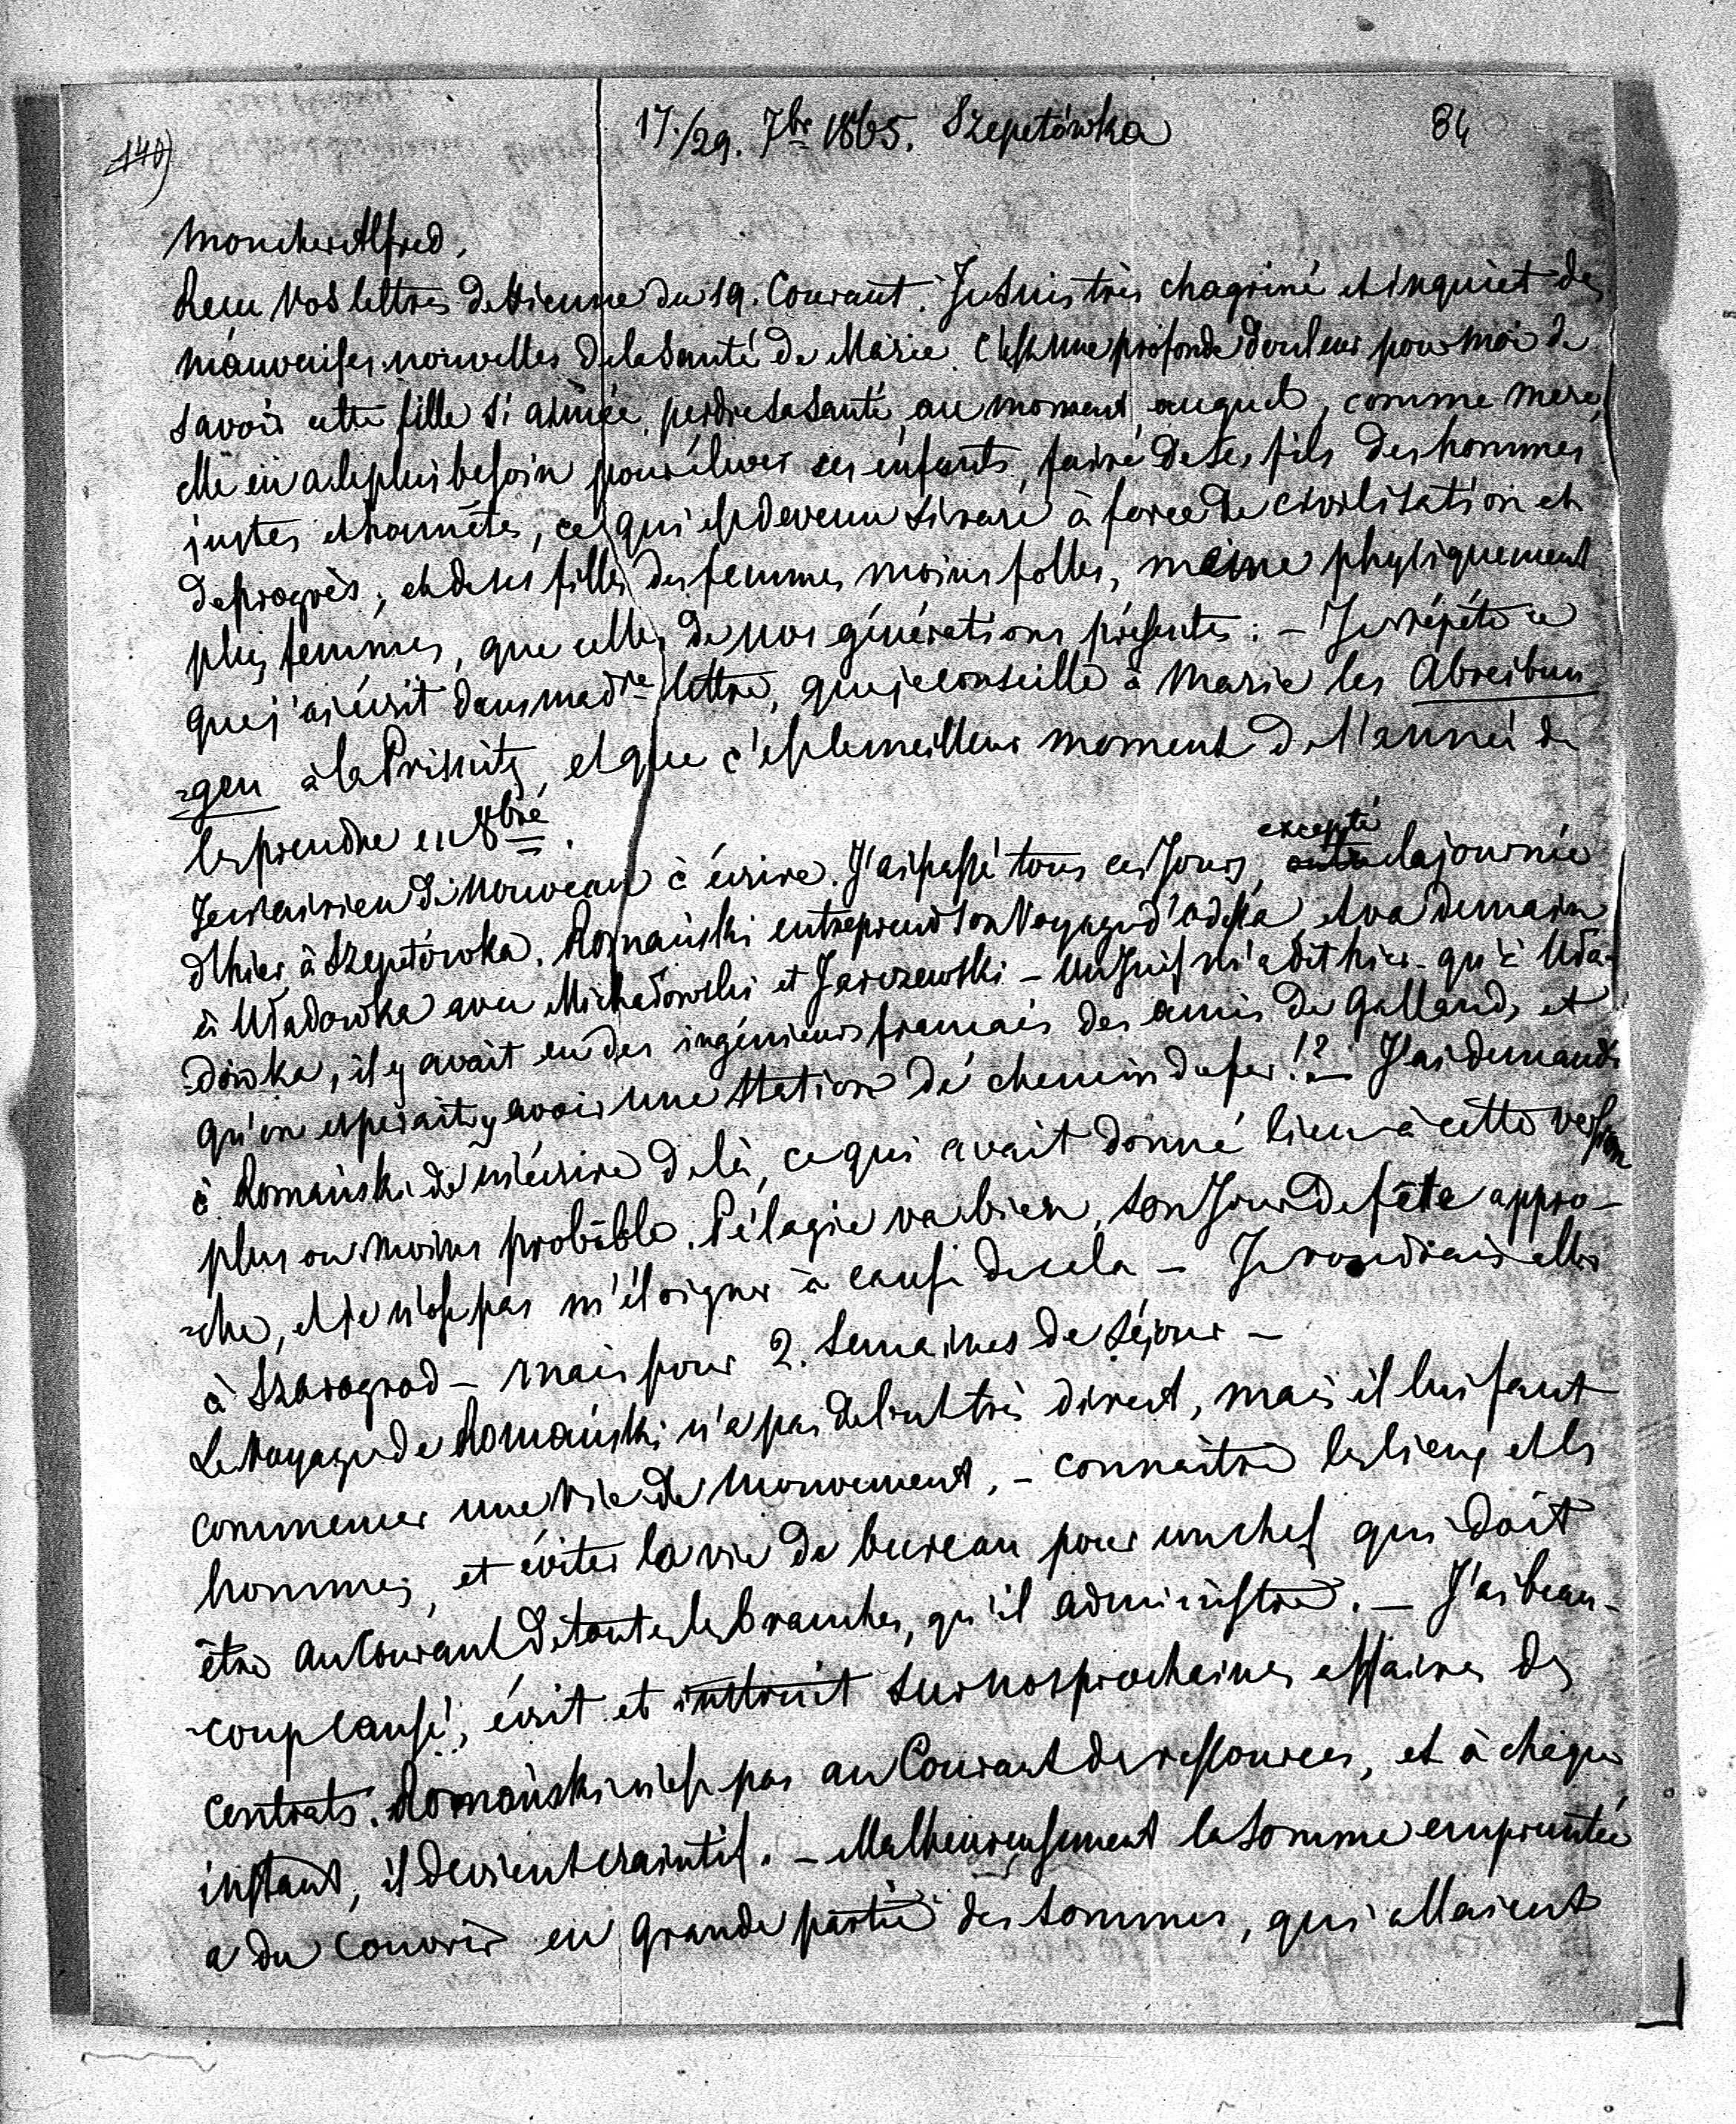 140)
17./29. 7bre 1865. Szepetówka
84
Mon cher Alfred,
Reçu vos lettres de Vienne du 19. Courant. Je suis très chagriné et inquiet des
mauvaises nouvelles de la Santé de Marie. C'est une profonde douleur pour moi de
savoir cette fille si aimée, perdre sa santé, au moment auquel, comme mère,
elle en a le plus besoin pour élever ses enfants, faire de ses fils des hommes
justes et honnêtes, ce qui est devenu si rare à force de civilisation et
de progrès; et de ses filles des femmes moins folles, même physiquement
plus femmes, que celles de nos générations présentes: – Je répète ce
que j'ai écrit dans ma dre lettre, que je conseille à Marie les Abreibun
-gen à la Prisnitz, et que c'est le meilleur moment de l'année de
les prendre en 8bre.
Je n'ai rien de nouveau à écrire. J'ai passé tous ces Jours, excepté outre la journée
d'hier, à Szepetówka. Romański entreprend son Voyage d'Odessa, et va demain
à Uładówka avec Michałowski et Jarczewski – Un Juif m'a dit hier – qu'à Uła-
dówka, il y avait eu des ingénieurs français des amis de Galland, et
qu'on esperait y avoir une Station de chemin de fer!? – J'ai demandé
à Romański de m'écrire de là, ce qui avait donné lieu à cette version
plus ou moins probable. Pélagie va bien, son Jour de fête appro-
-che, et je n'ose pas m'éloigner à cause de cela – Je voudrais aller
à Szarogrod – mais pour 2. Semaines de Séjour –
Le Voyage de Romański n'a pas de but très direct, mais il lui faut
commencer une vie de mouvement, – connaître les lieux et les
hommes, et éviter la vie de bureau pour un chef qui doit
être au Courant de toutes les branches, qu'il administre. – J'ai beau-
-coup causé, écrit et instruit sur nos prochaines affaires des
contrats. Romański n'est pas au Courant des ressources, et à chaque
instant, il devient craintif. – Malheureusement la Somme empruntée
a du couvrir en grande partie des Sommes, qui allaient